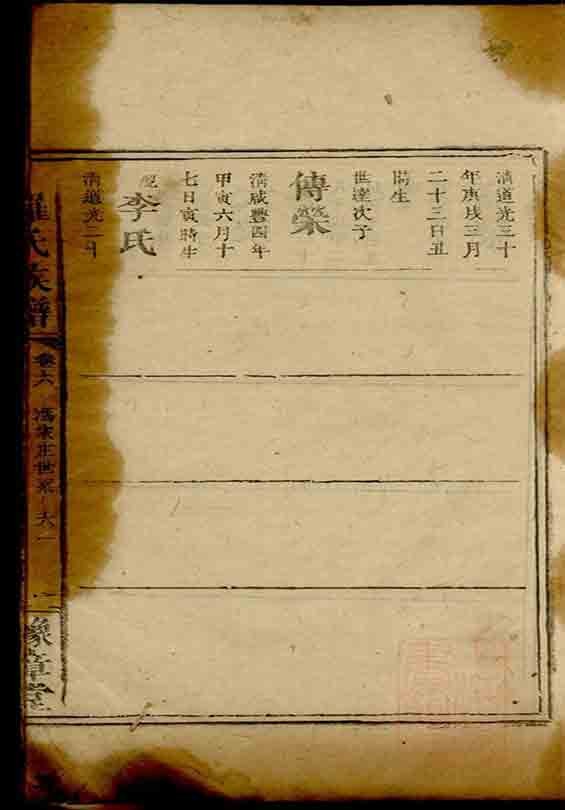 清道光三十
年庚戌三月
二十三日丑
時生
傳榮
世達次子
清咸豐四年
甲寅六月十
七日寅時生
配
李氏
清道光三十
羅氏族譜
卷六
馮家庄世系
六一
豫章堂